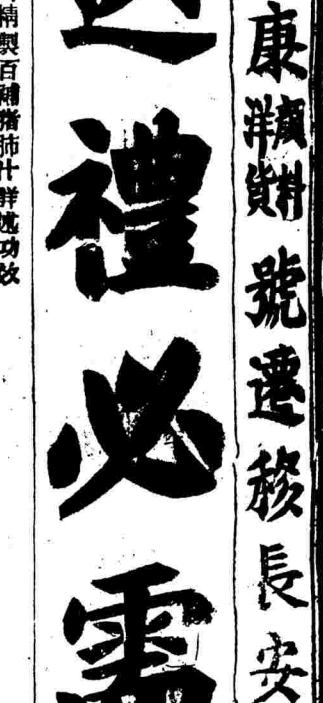 康顏料洋貨號遷移長安
送禮必需
精製百補猪肺汁詳述功效